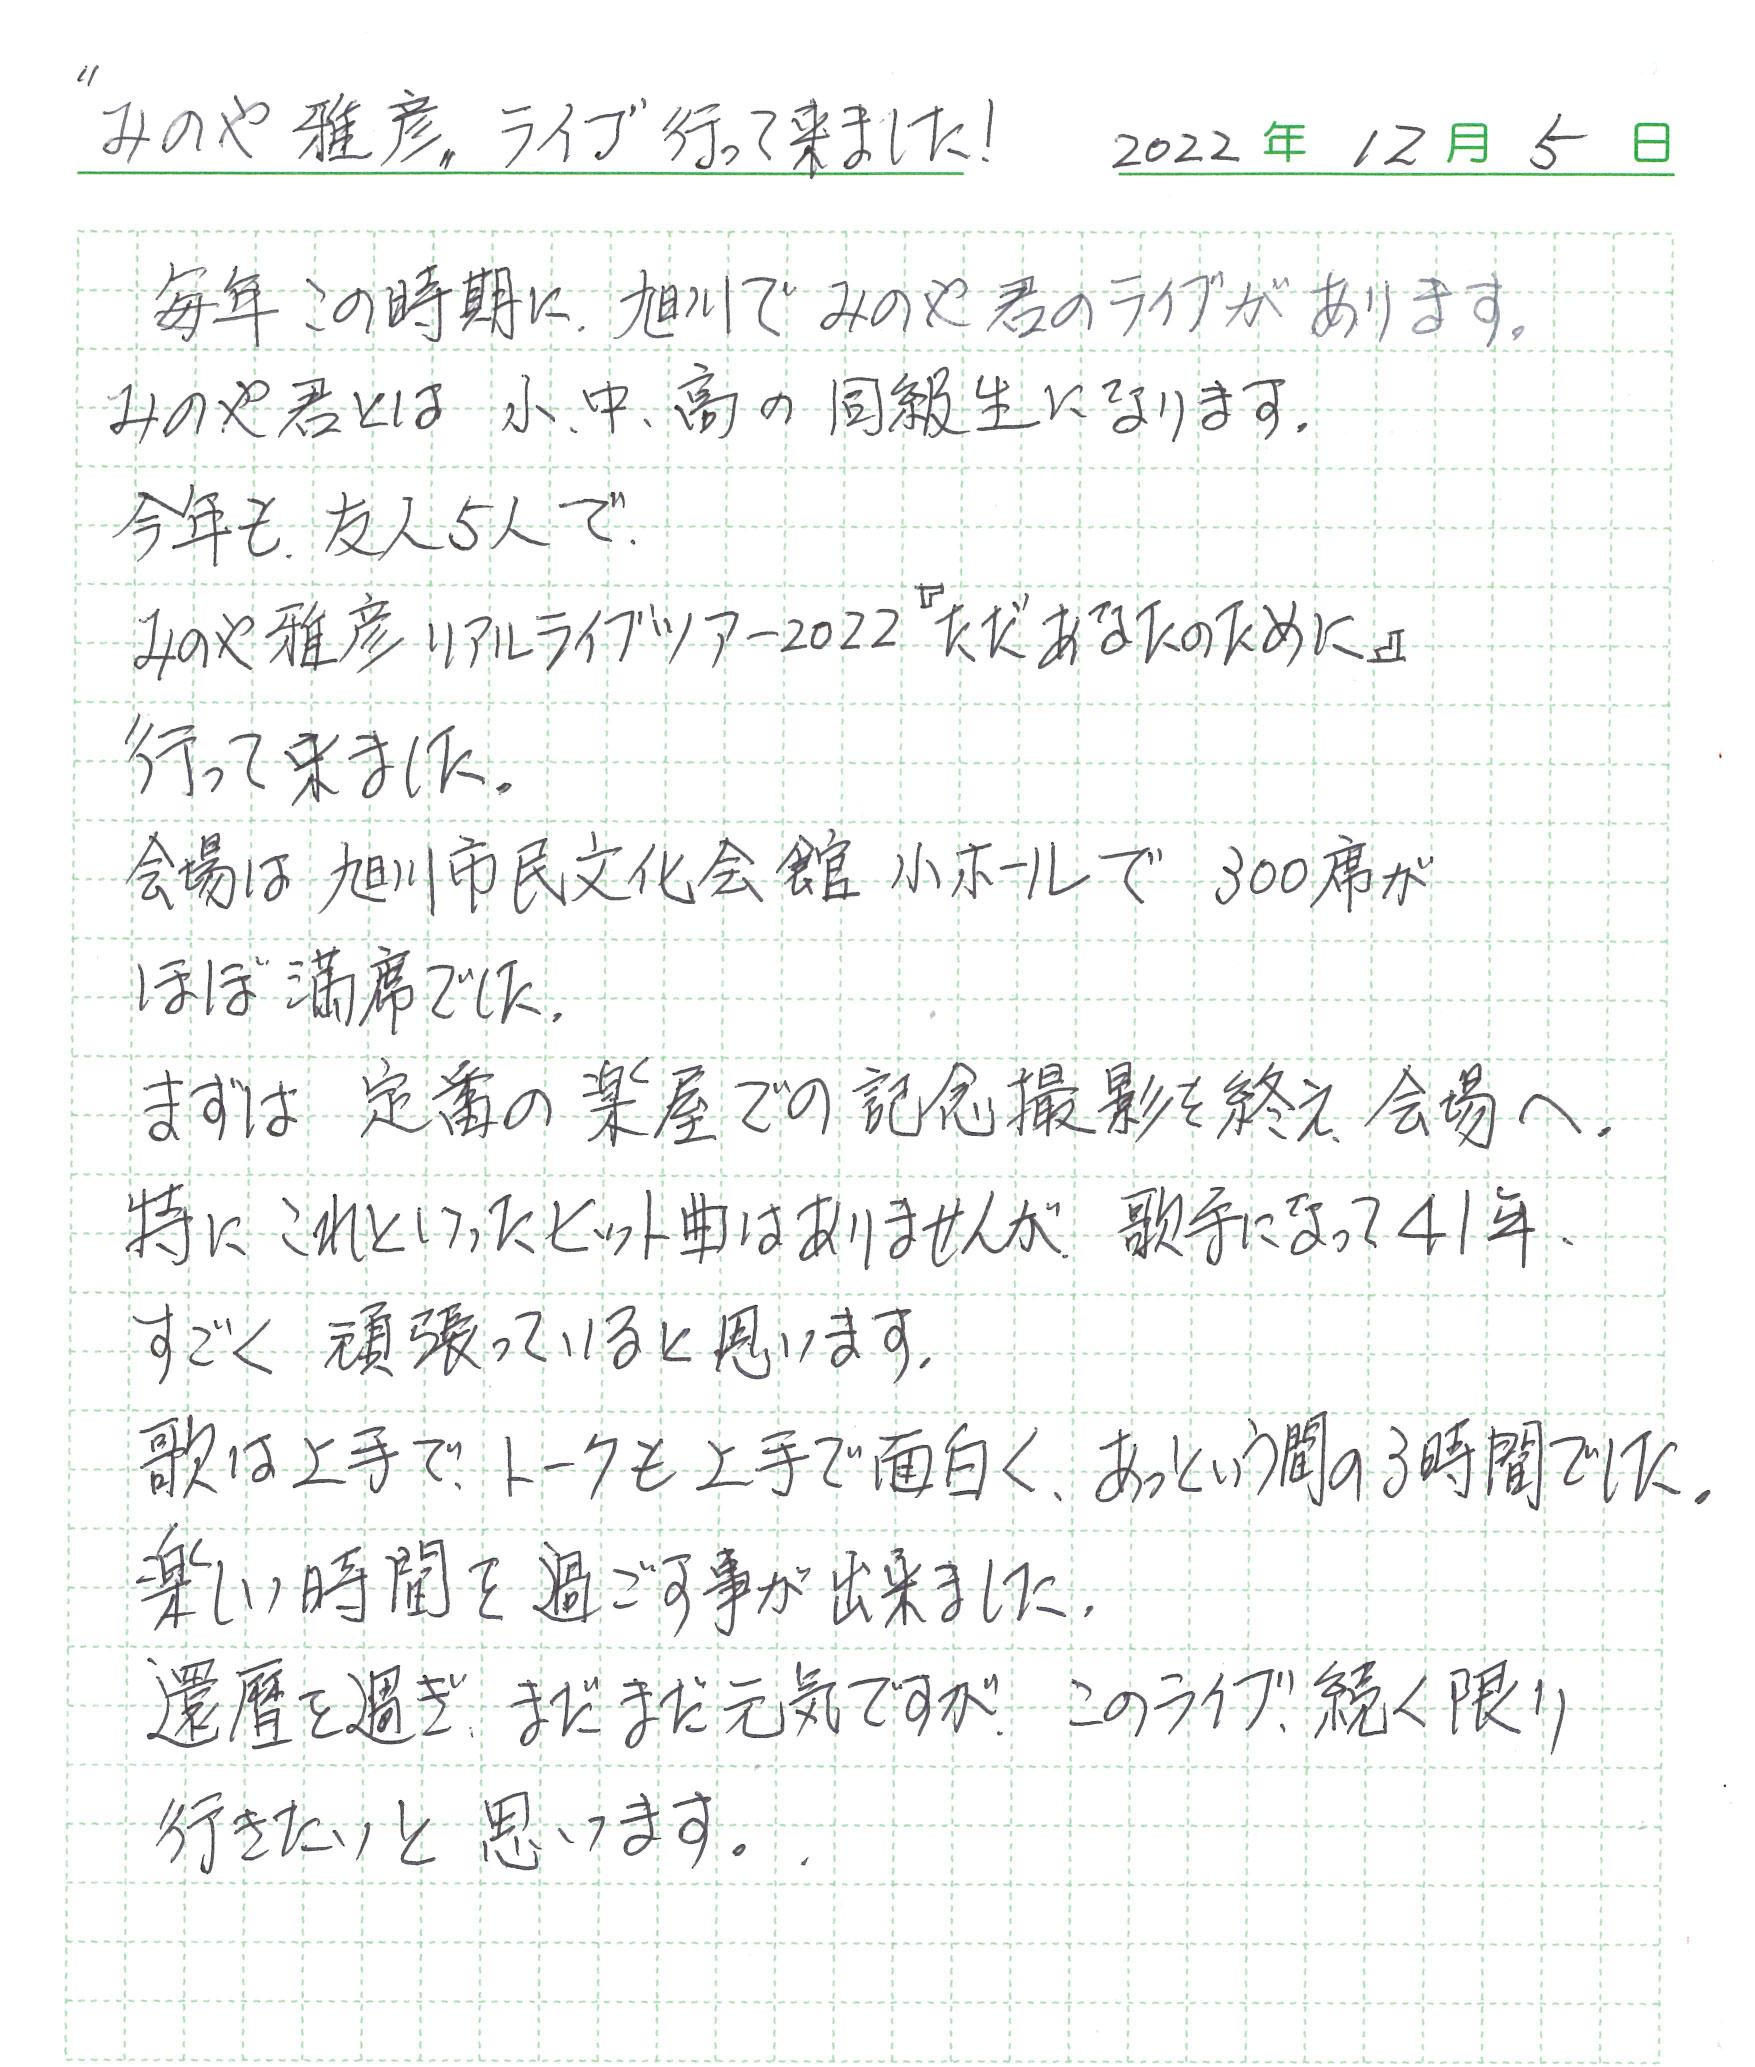 "みのや雅彦" ライブ行って来ました! 2022年 12月 5日
毎年この時期に、旭川でみのや君のライブがあります。
みのや君とは 小、中、高の同級生になります。
今年も、友人5人で、
みのや雅彦リアルライブツアー2022『ただあなたのために』
行って来ました。
会場は 旭川市民文化会館 小ホールで 300席が
ほぼ満席でした。
まずは 定番の楽屋での記念撮影を終え、会場へ。
特に これといったヒット曲はありませんが、歌手になって41年、
すごく 頑張っていると思います。
歌は上手で、トークも上手で面白く、あっという間の3時間でした。
楽しい時間を過ごす事が出来ました。
還暦を過ぎ、まだまだ元気ですが、このライブ、続く限り
行きたいと思います。